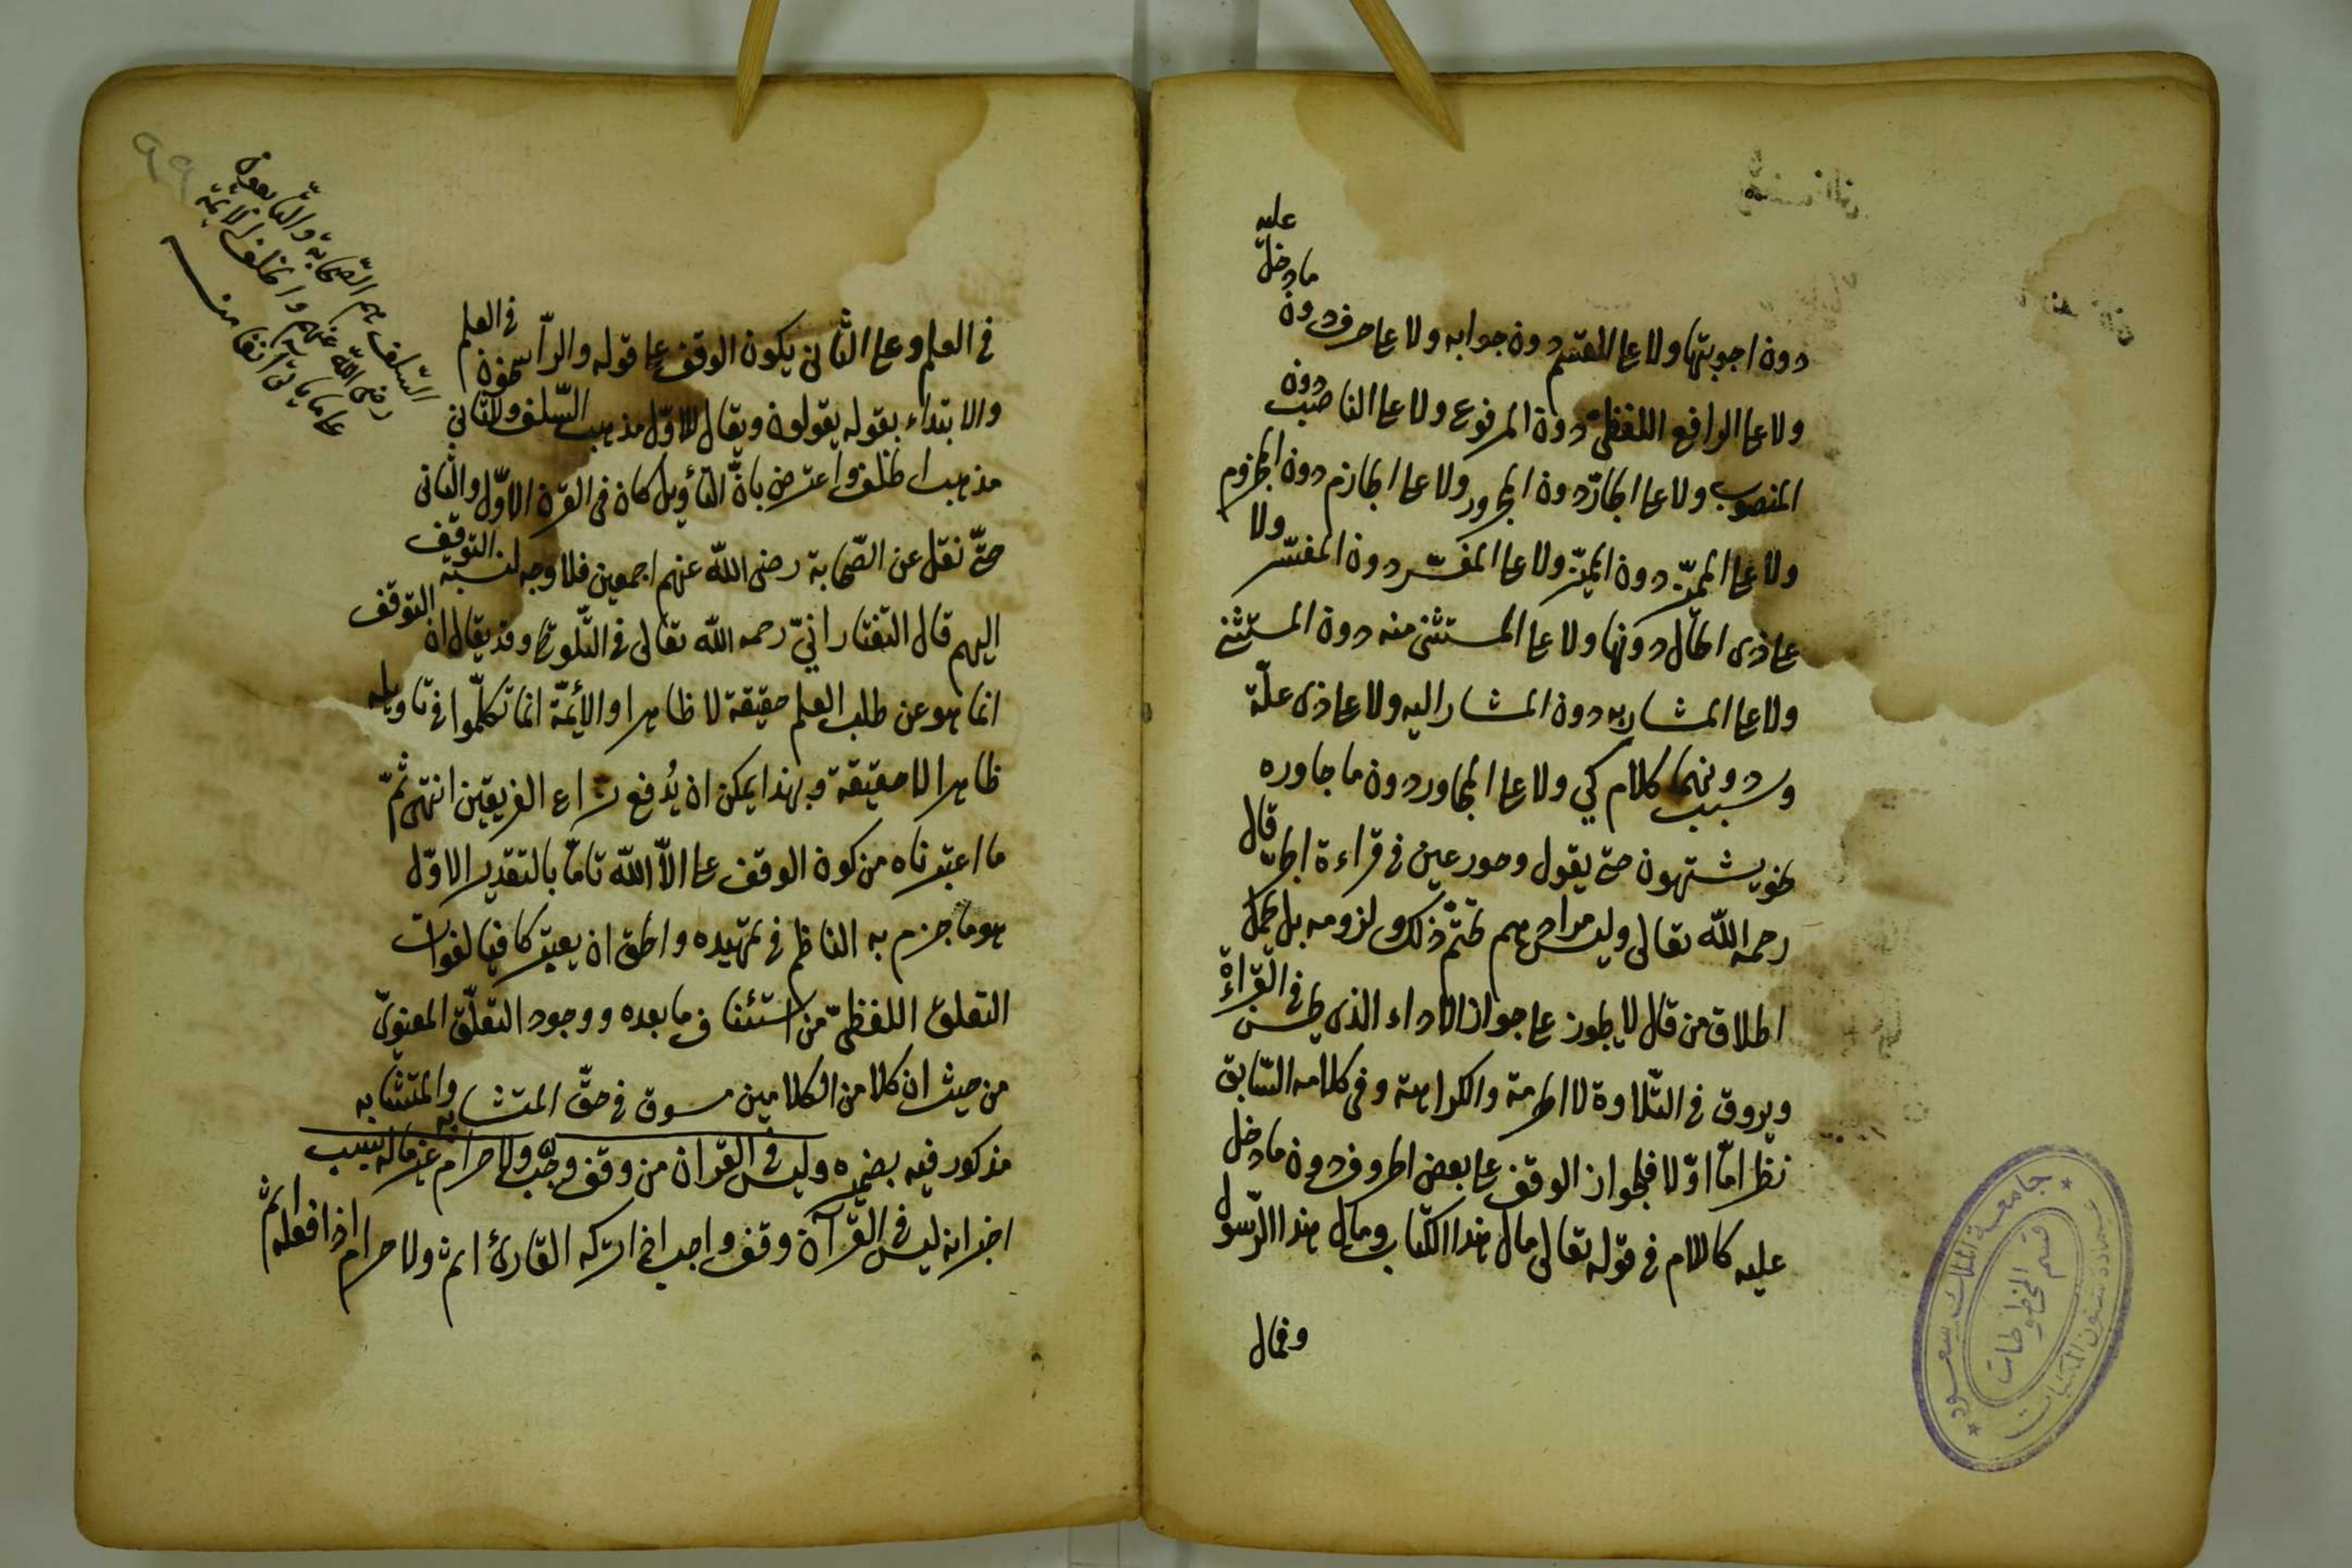 عليه
ما دخل
دون اجوبتها ولا على القسم دون جوابه ولا على حرف دون
ولا على الرافع اللفظىّ دون المرفوع ولا على الناصب دون
المنصوب ولا على الجارّ دون المجرور ولا على الجازم دون المجزوم
ولا على المميّز دون المميّز ولا على المفسّر دون المفسّر ولا
على ذى الحال دونها ولا على المستثنى منه دون المستثنى
ولا على المشار به دون المشار اليه ولا على ذى علّة
وسبب دونهما كلام كي ولا على المجاور دون ما جاوره
نحو يشتهون حتى يقول وحور عين فى قراءة الجر قال
رحمه الله تعالى وليس مرادهم تحتّم ذلك ولزومه بل يحمل
اطلاق من قال لا يجوز على جواز الاداء الذى يحسن فى القراءة
ويروق فى التّلاوة لا الحرمة والكراهة وفى كلامه السّابق
نظر امّا اوّلا فلجواز الوقف على بعض الحروف دون ما دخل
عليه كاللام فى قوله تعالى مال هذا الكتاب ومال هذا الرّسول
وفمال
جامعة الملك سعود
عمادة شئون المكتبات
قسم المخطوطات
٩٩
السّلف هم الصّحابة والتّابعون
رضى الله عنهم والخلف الائمة
على ما يأتى انفا منه
فى العلم وعلى الثّانى يكون الوقف على قوله والرّاسخون فى العلم
والابتداء بقوله يقولون ويقال للاوّل مذهب السّلف وللثّانى
مذهب الخلف واعترض بانّ التّأويل كان فى القرن الاوّل والثّانى
حتّى نقل عن الصّحابة رضى الله عنهم اجمعين فلا وجه لنسبة التوقف
اليهم قال التفتازانىّ رحمه الله تعالى فى التّلويح وقد يقال ان التوقف
انما هو عن طلب العلم حقيقة لا ظاهرا والأئمّة انما تكلّموا فى تأويله
ظاهرا لا حقيقة وبهذا يمكن ان يُدفع نزاع الفريقين انتهى ثمّ
ما اعتبرناه من كون الوقف على الاّ الله تامّا بالتقدير الاوّل
هو ما جزم به الناظم فى تمهيده والحق ان يعتبر كافيا لفوات
التعلق اللفظىّ من استئناف ما بعده ووجود التعلّق المعنوىّ
من حيث ان كلا من الكلامين مسوق فى حقّ المتشابه والمتشابه
مذكور فيه بضميره وليس فى القران من وقف وجب ولا حرام غير ما له سبب
اخبر انه ليس فى القرآن وقف واجب اذا تركه القارئ اثم ولا حرام اذا فعله اثم